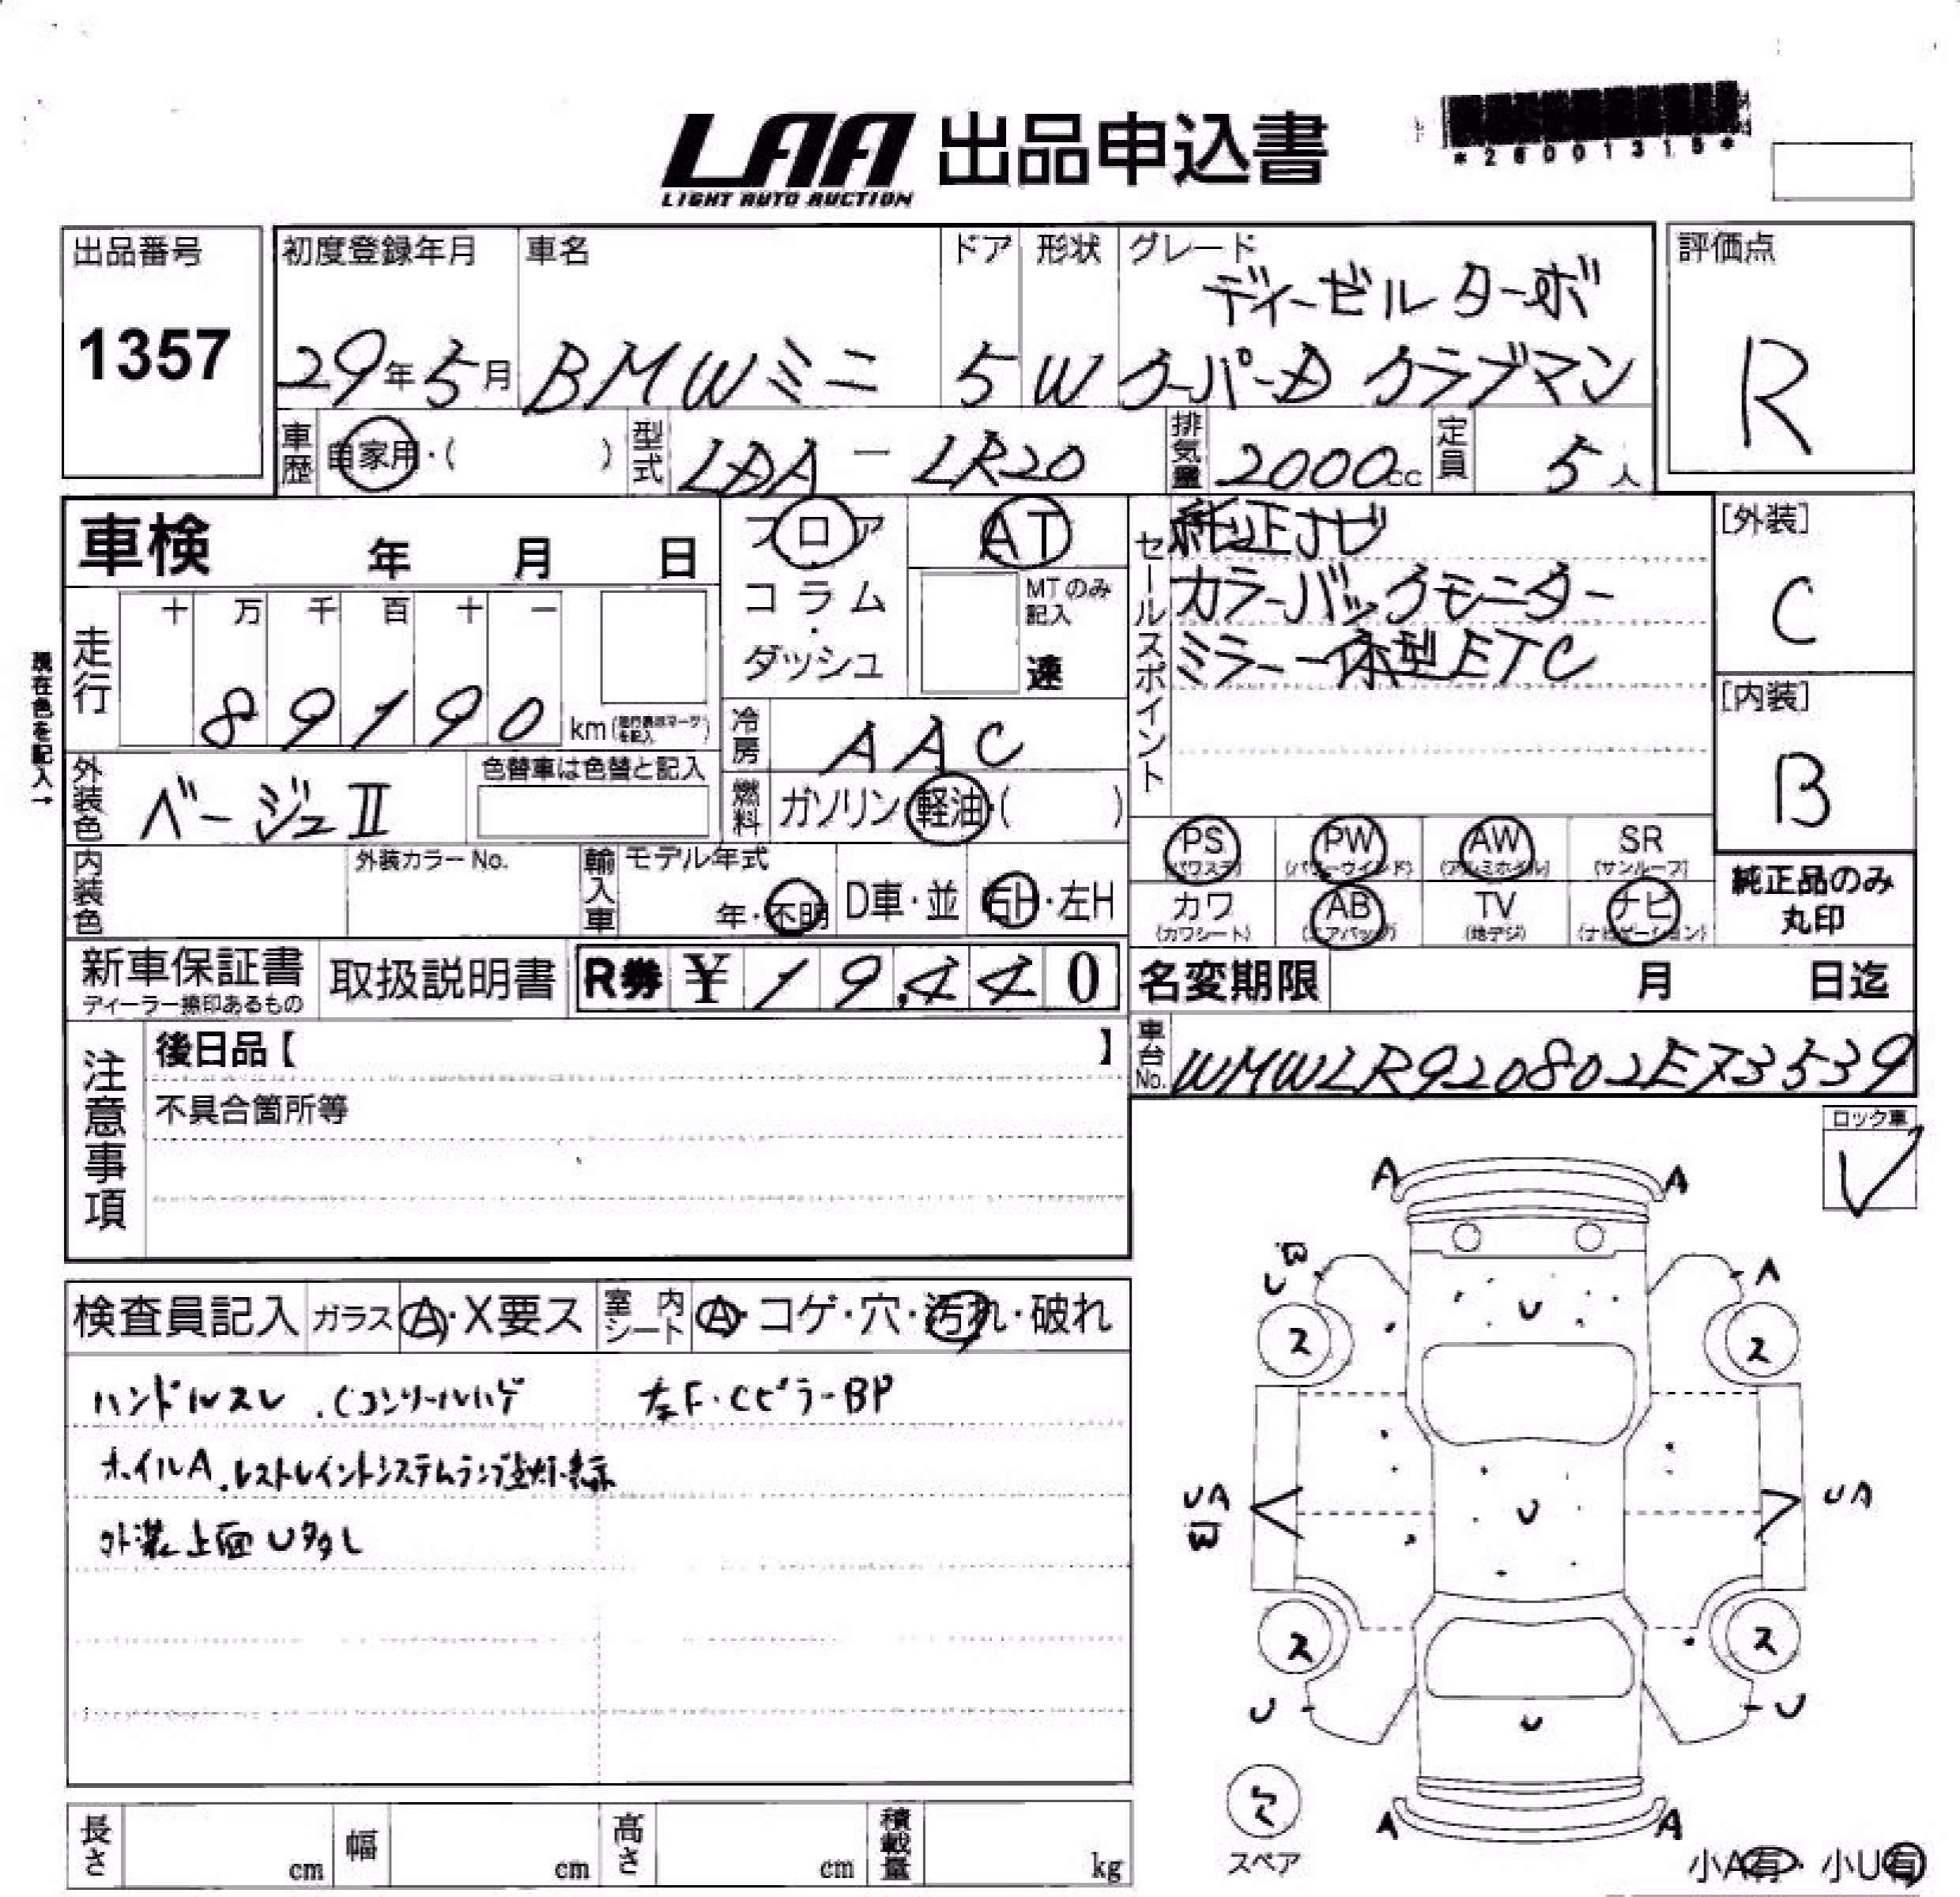 LAA 出品申込書
LIGHT AUTO AUCTION
*26001315*
出品番号 初度登録年月 車名 ドア 形状 グレード 評価点
ディーゼルターボ
1357 29年5月 BMWミニ 5 W クーパーD クラブマン R
車歴 自家用・( ) 型式 LDA-LR20 排気量 2000cc 定員 5人
車検 年 月 日 フロア AT セールスポイント 純正ナビ [外装]
コラム・ MTのみ記入 カラーバックモニター C
走行 十 万 千 百 十 一
ダッシュ 速 ミラー一体型ETC
現在色を記入→
89190 km [内装]
冷房 AAC B
外装色 ベージュⅡ 色替車は色替と記入
燃料 ガソリン・軽油・( )
PS PW AW SR
(パワステ) (パワーウインド) (アルミホイル) (サンルーフ)
内装色 外装カラーNo. 輸入車 モデル年式 年・不明 D車・並 右H・左H
カワ AB TV ナビ 純正品のみ丸印
(カワシート) (エアバッグ) (地デジ) (ナビゲーション)
新車保証書 取扱説明書 R券 ¥19,440 名変期限 月 日迄
ディーラー捺印あるもの
注意事項 後日品【 】 車台No. WMWLR920802E73539
不具合箇所等
ロック車
A A
検査員記入 ガラス A・X要ス 室内シート A・コゲ・穴・汚れ・破れ
ハンドルスレ .Cコンソールハゲ 左F・CピラーBP
ホイルA .レストレイントシステムランプ点灯・表示
外装上面U多し
W
U A
ス U ス
UA U UA
W
ス ス
U U U
欠
スペア
A A
長さ cm 幅 cm 高さ cm 積載量 kg
小A有・小U有